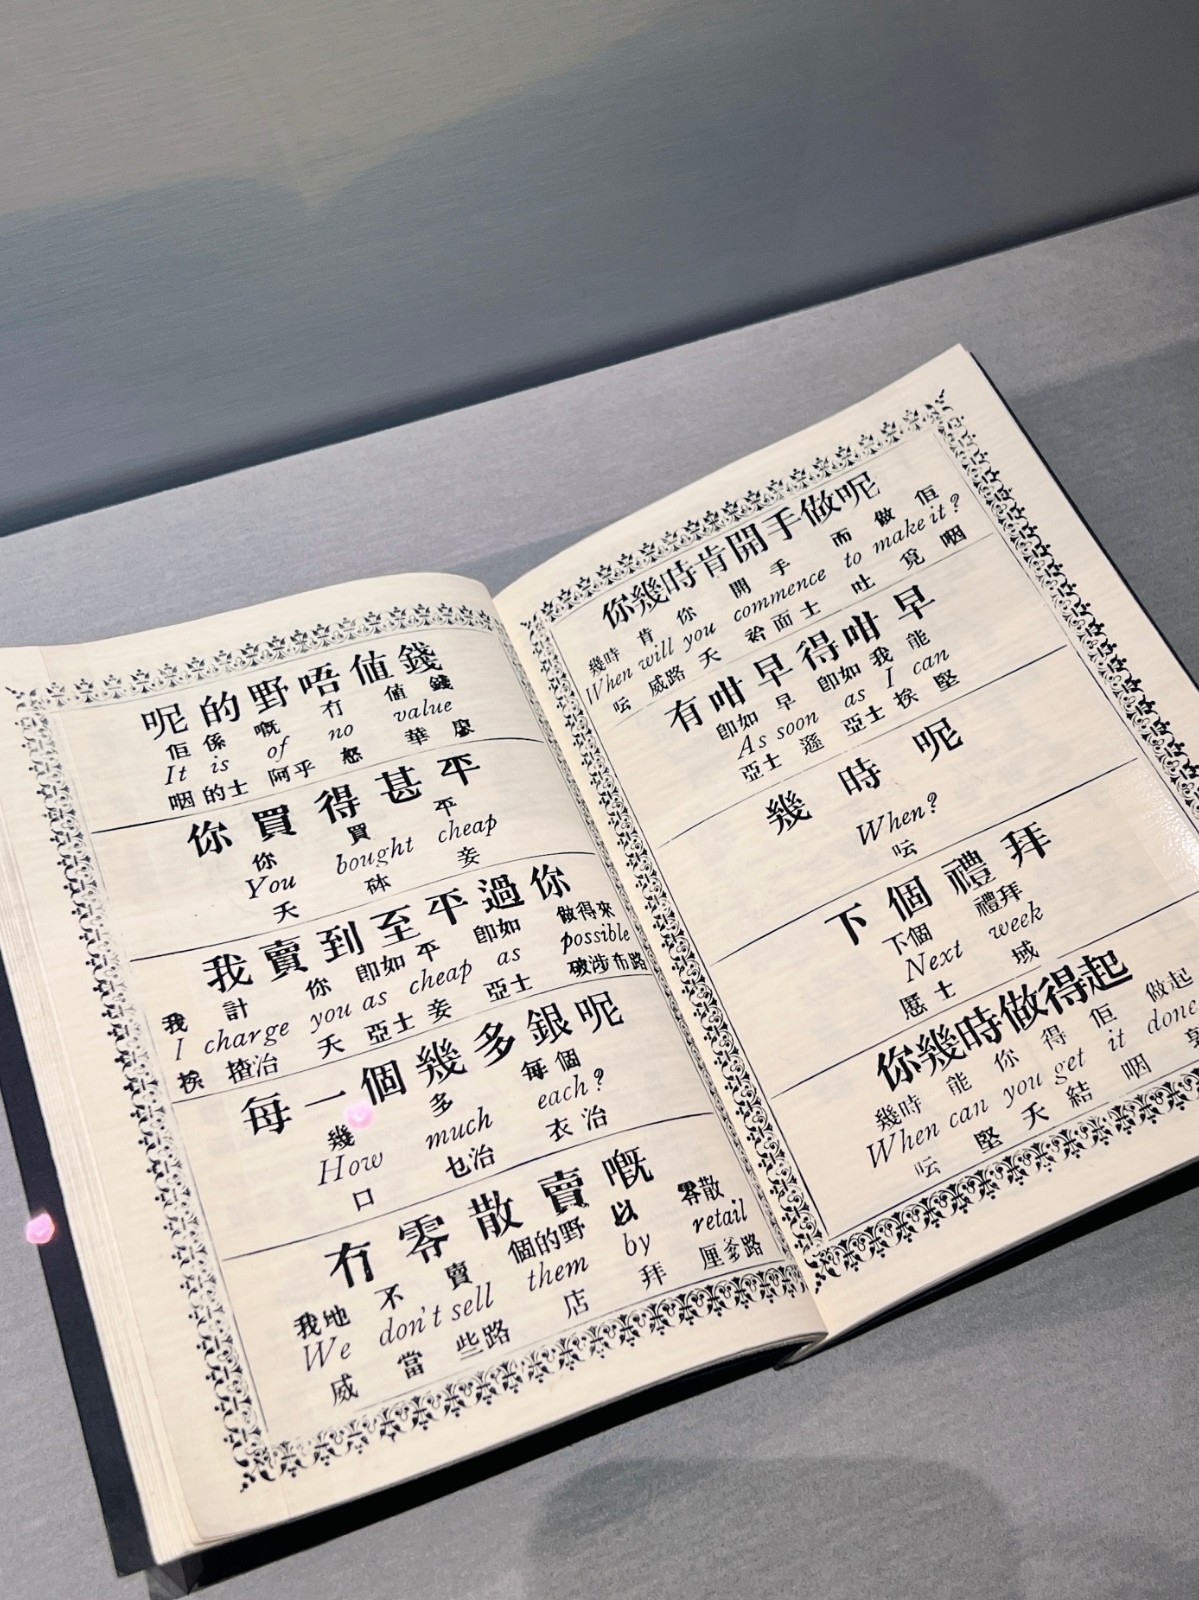 呢的野唔值錢
佢係嘅冇值錢
It is of no value
咽的士阿乎怒華廖
你買得甚平
你買平
You bought cheap
天砵妾
我賣到至平過你
我計你即如平即如做得來
I charge you as cheap as possible
挨揸治天亞士妾亞士破涉布路
每一個幾多銀呢
幾多每個
How much each?
口乜治衣治
冇零散賣嘅
我地不賣個的野以零散
We don't sell them by retail
威當些路店拜厘爹路
你幾時肯開手做呢
幾時肯你開手而做佢
When will you commence to make it?
呍威路天面士吐覓咽
有咁早得咁早
即如早即如我能
As soon as I can
亞士遜亞士挨堅
幾時呢
When?
呍
下個禮拜
下個禮拜
Next week
士域
你幾時做得起
幾時能你得佢做起
When can you get it done
呍堅天結咽